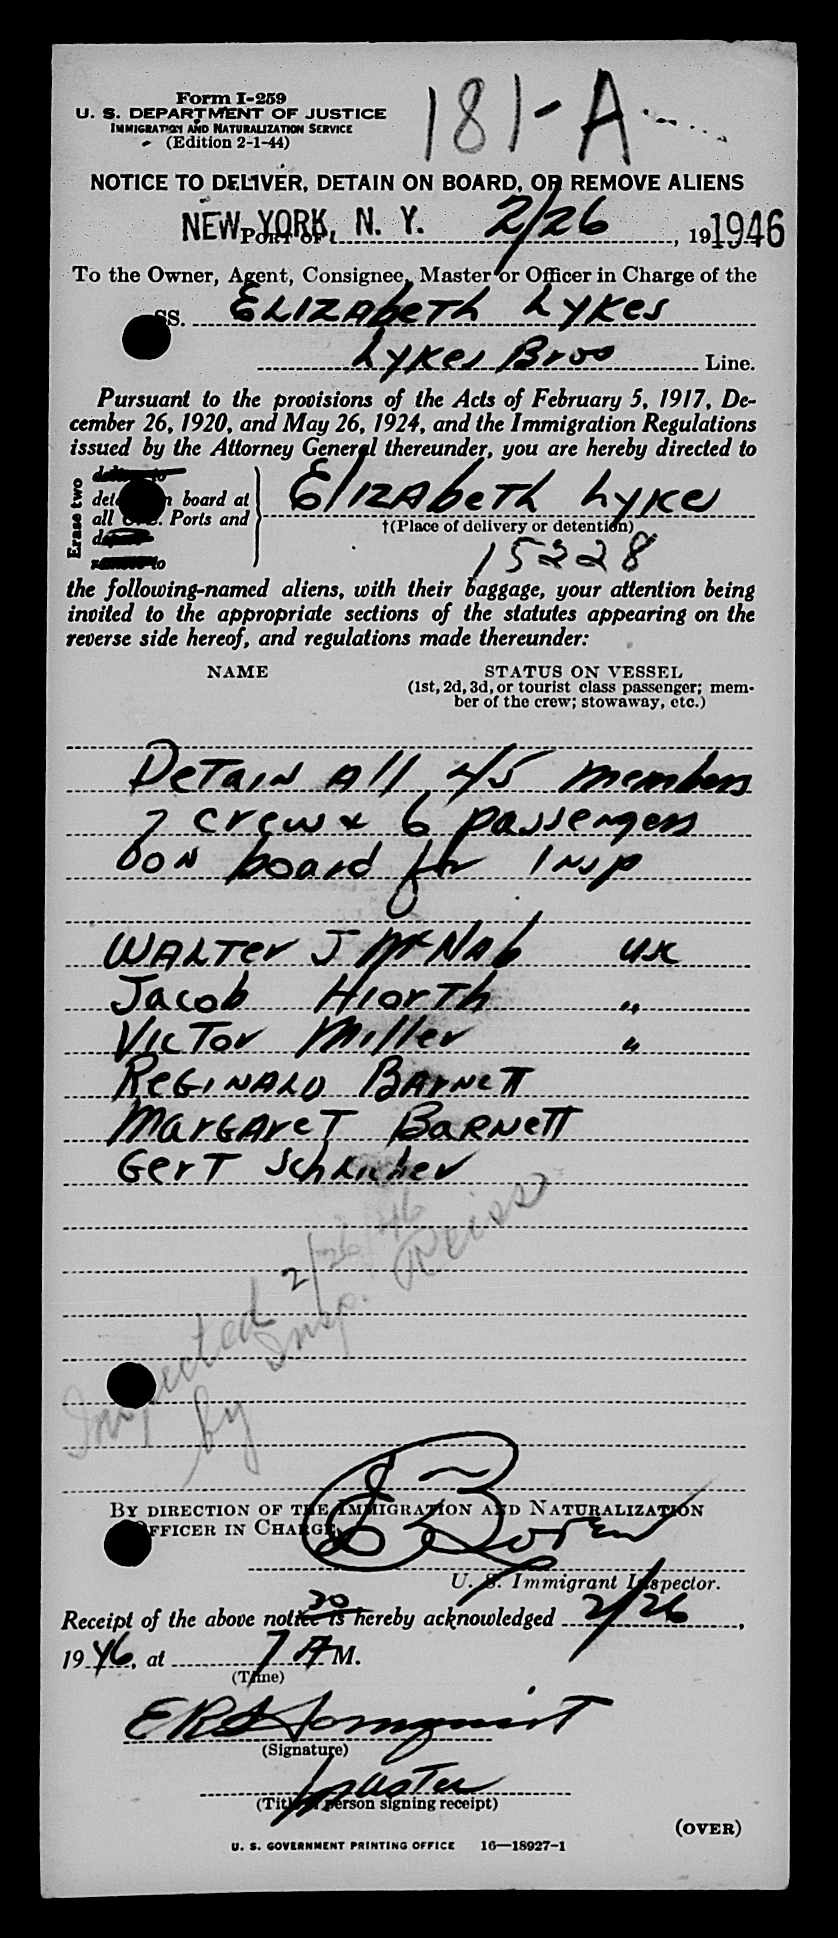 181-A
Form I-259
U. S. DEPARTMENT OF JUSTICE
IMMIGRATION AND NATURALIZATION SERVICE
(Edition 2-1-44)
NOTICE TO DELIVER, DETAIN ON BOARD, OR REMOVE ALIENS
NEW YORK, N. Y. 2/26, 19 1946
PORT OF
To the Owner, Agent, Consignee, Master or Officer in Charge of the
SS. ELIZABETH LYKES
Lykes Bros Line.
Pursuant to the provisions of the Acts of February 5, 1917, De-
cember 26, 1920, and May 26, 1924, and the Immigration Regulations
issued by the Attorney General thereunder, you are hereby directed to
Erase two
board at
all Ports and
Elizabeth Lykes
†(Place of delivery or detention)
15228
the following-named aliens, with their baggage, your attention being
invited to the appropriate sections of the statutes appearing on the
reverse side hereof, and regulations made thereunder:
NAME STATUS ON VESSEL
(1st, 2d, 3d, or tourist class passenger; mem-
ber of the crew; stowaway, etc.)
Detain All 45 members
crew & 6 passengers
on board for Insp
Walter J McNab
Jacob Hiorth "
Victor Miller "
Reginald Barnett
Margaret Barnett
Gert
Inspected 2/26/46
by Insp. Reiss
BY DIRECTION OF THE IMMIGRATION AND NATURALIZATION
OFFICER IN CHARGE,
U. S. Immigrant Inspector.
30
Receipt of the above notice is hereby acknowledged 2/26,
1946, at 7 A M.
(Time)
(Signature)
Master
(Title of person signing receipt)
(OVER)
U. S. GOVERNMENT PRINTING OFFICE 16—18927-1